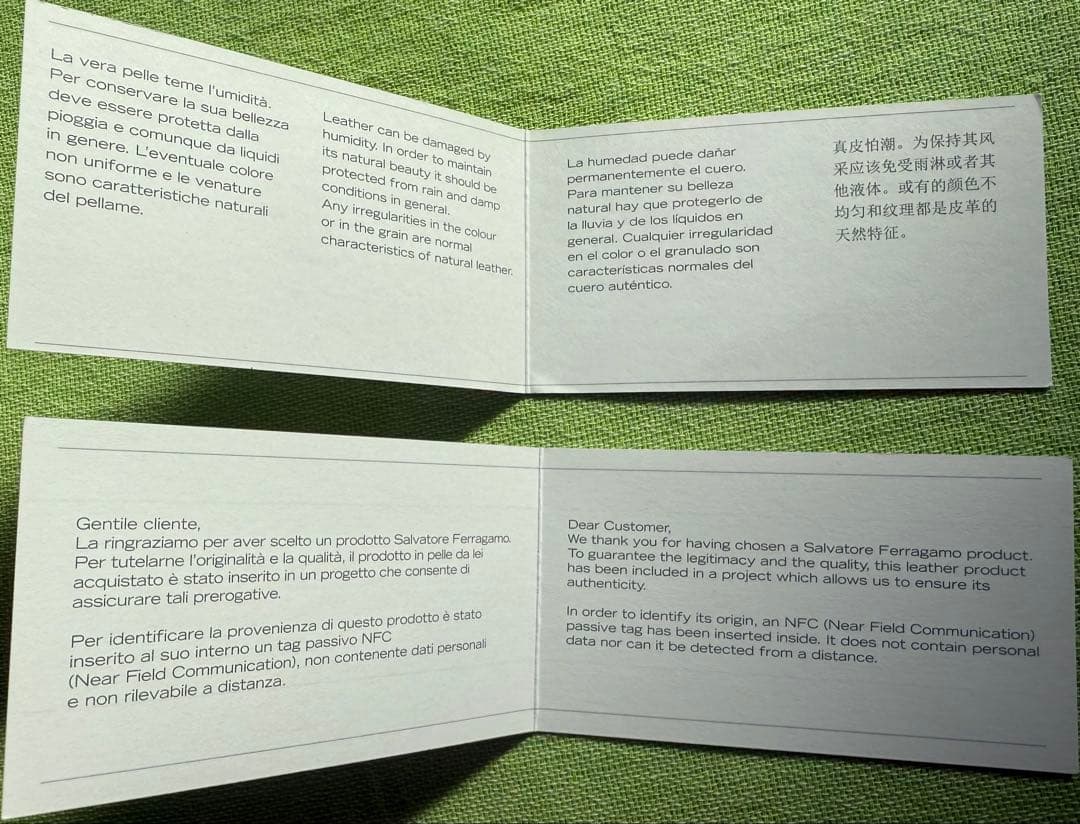 La vera pelle teme l'umidità.
Per conservare la sua bellezza
deve essere protetta dalla
pioggia e comunque da liquidi
in genere. L'eventuale colore
non uniforme e le venature
sono caratteristiche naturali
del pellame.
Leather can be damaged by
humidity. In order to maintain
its natural beauty it should be
protected from rain and damp
conditions in general.
Any irregularities in the colour
or in the grain are normal
characteristics of natural leather.
La humedad puede dañar
permanentemente el cuero.
Para mantener su belleza
natural hay que protegerlo de
la lluvia y de los líquidos en
general. Cualquier irregularidad
en el color o el granulado son
características normales del
cuero auténtico.
真皮怕潮。为保持其风
采应该免受雨淋或者其
他液体。或有的颜色不
均匀和纹理都是皮革的
天然特征。
Gentile cliente,
La ringraziamo per aver scelto un prodotto Salvatore Ferragamo.
Per tutelarne l'originalità e la qualità, il prodotto in pelle da lei
acquistato è stato inserito in un progetto che consente di
assicurare tali prerogative.
Per identificare la provenienza di questo prodotto è stato
inserito al suo interno un tag passivo NFC
(Near Field Communication), non contenente dati personali
e non rilevabile a distanza.
Dear Customer,
We thank you for having chosen a Salvatore Ferragamo product.
To guarantee the legitimacy and the quality, this leather product
has been included in a project which allows us to ensure its
authenticity.
In order to identify its origin, an NFC (Near Field Communication)
passive tag has been inserted inside. It does not contain personal
data nor can it be detected from a distance.